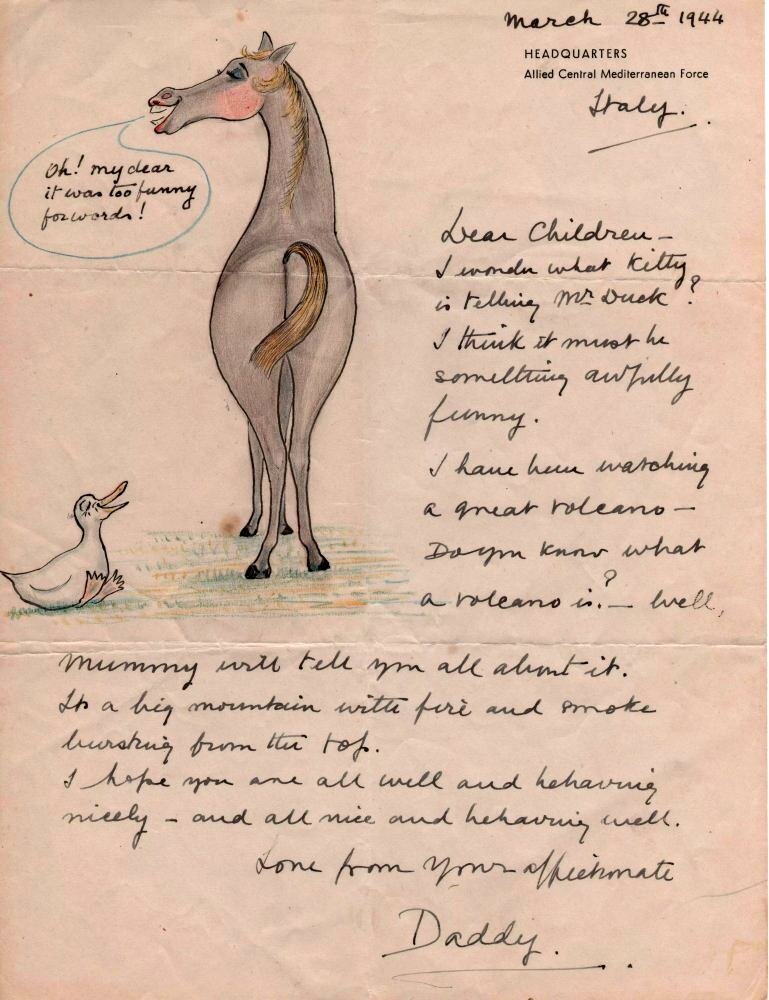 March 28th 1944
HEADQUARTERS
Allied Central Mediterranean Force
Italy.
Oh! my dear
it was too funny
for words!
Dear Children –
I wonder what Kitty
is telling Mr Duck?
I think it must be
something awfully
funny.
I have been watching
a great volcano –
Do you know what
a volcano is? – Well,
Mummy will tell you all about it.
Its a big mountain with fire and smoke
bursting from the top.
I hope you are all well and behaving
nicely – and all nice and behaving well.
Love from your affectionate
Daddy.